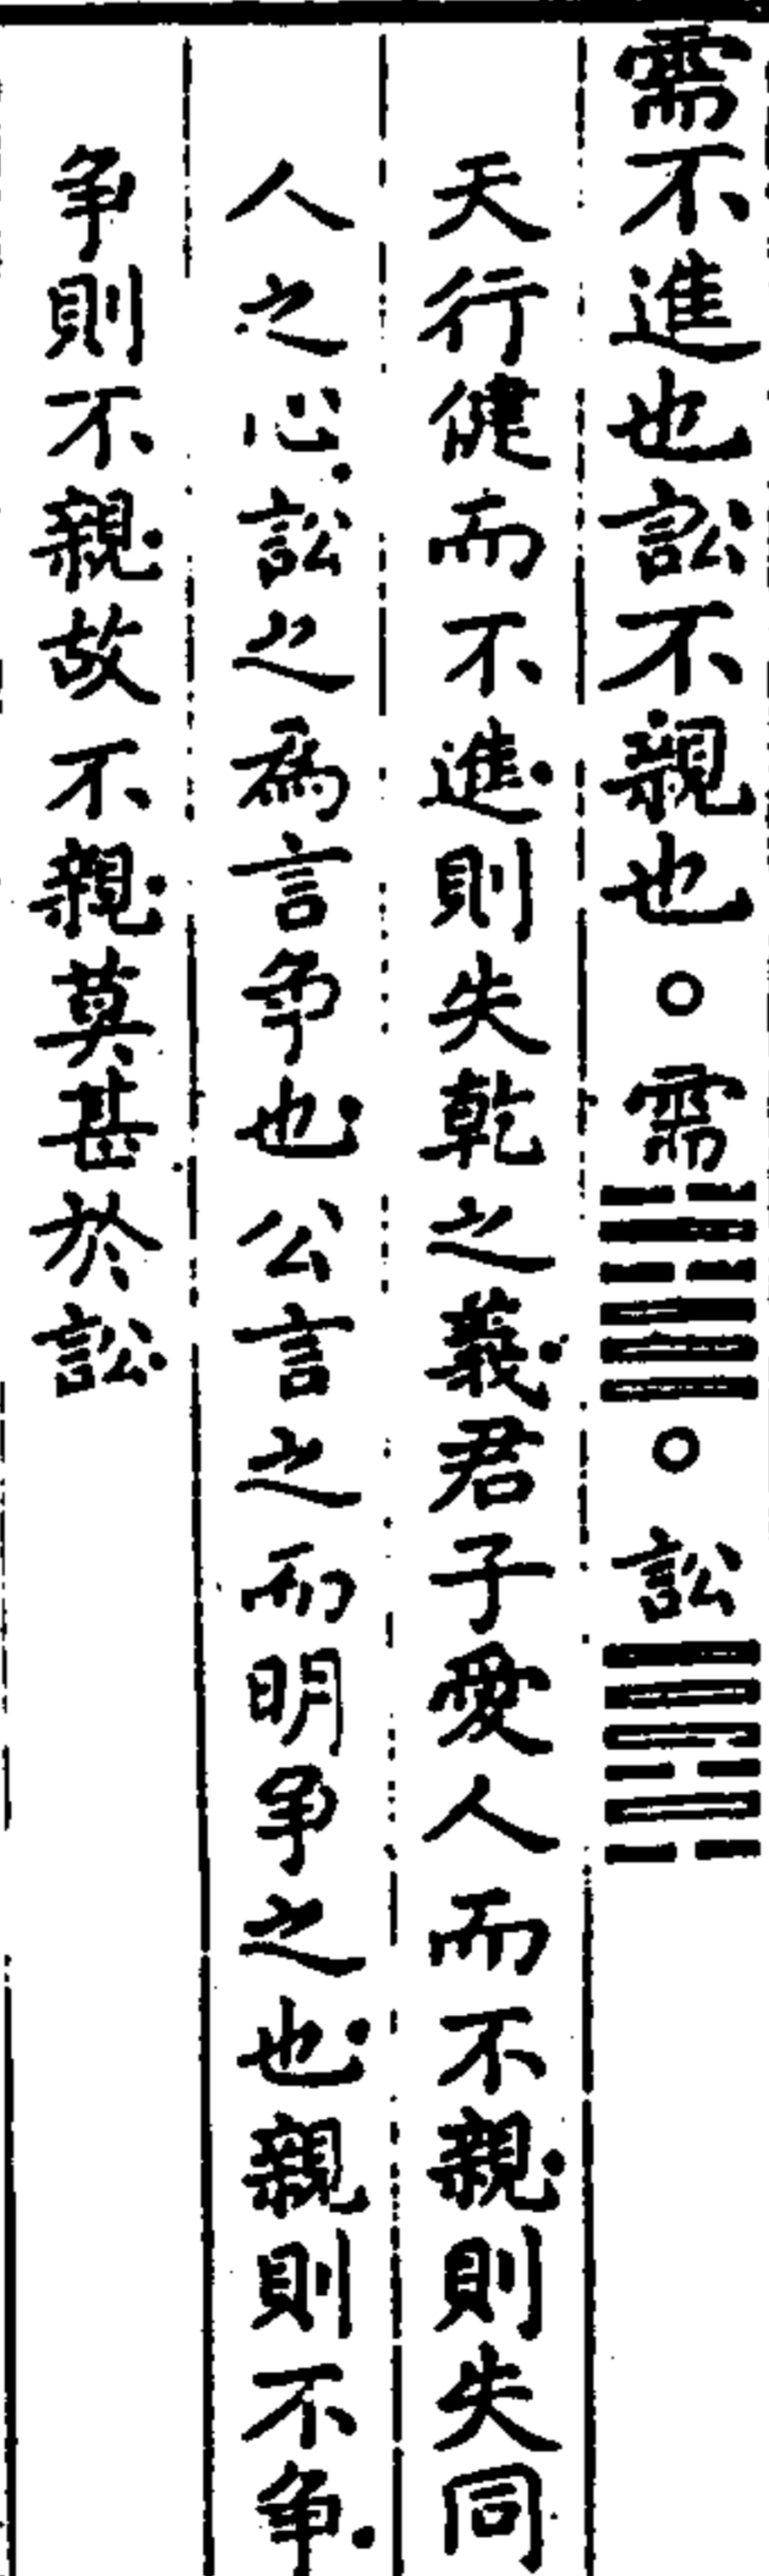 需不進也訟不親也○需䷄○訟䷅
天行健而不進則失乾之義君子愛人而不親則失同
人之心訟之為言爭也公言之而明爭之也親則不爭
爭則不親故不親莫甚於訟